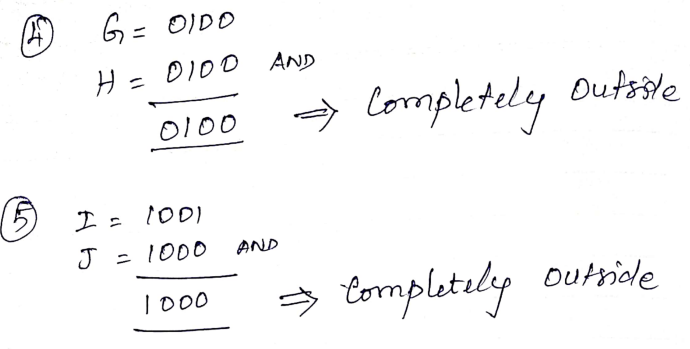 ④ G = 0100
H = 0100 AND
0100 ⇒ Completely Outside
⑤ I = 1001
J = 1000 AND
1000 ⇒ Completely outside